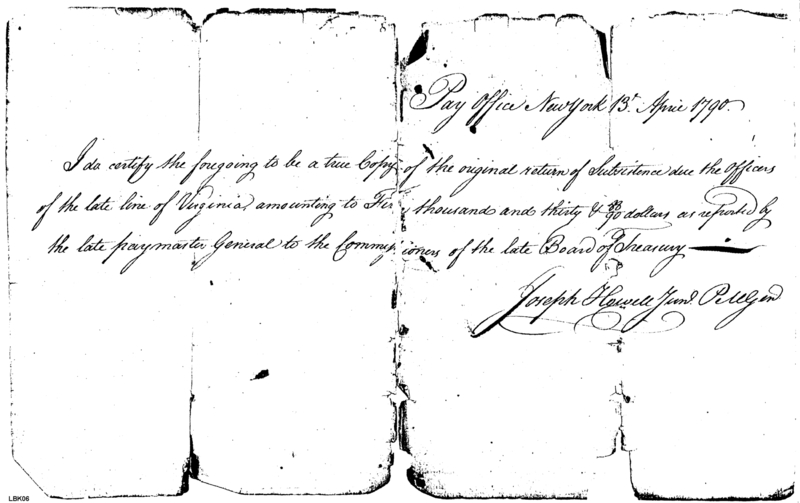 Pay Office New York 13t April 1790.
I do certify the foregoing to be a true Copy of the original return of Subsistence due the Officers
of the late line of Virginia, amounting to thousand and thirty & /90 dollars as reported by
the late paymaster General to the Commissioners of the late Board of Treasury
Joseph Howell Junr. P.M.Genl
LBK06